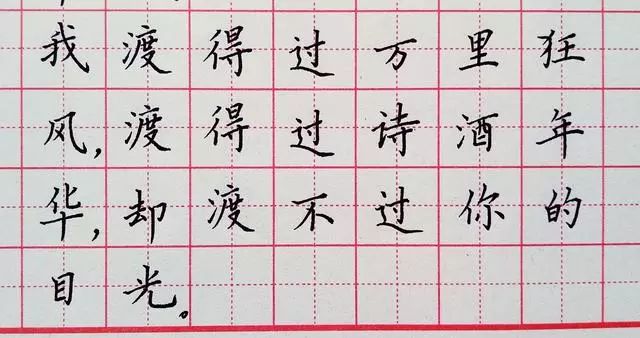 我渡得过万里狂
风，渡得过诗酒年
华，却渡不过你的
目光。